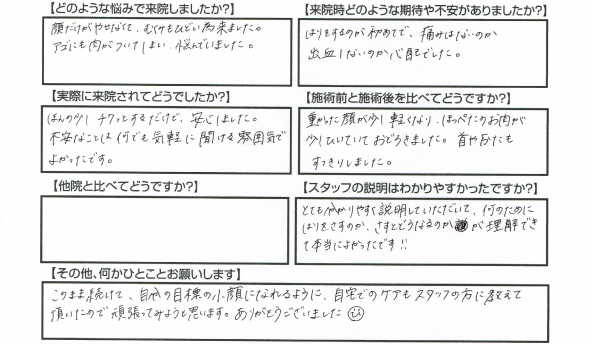 【どのような悩みで来院しましたか?】
顔だけがやせなくて、むくみもひどい為来ました。
アゴにも肉がついてしまい、悩んでいました。
【来院時どのような期待や不安がありましたか?】
はりをするのが初めてで、痛みはないのか
出血しないのか心配でした。
【実際に来院されてどうでしたか?】
ほんの少しチクッとするだけで、安心しました。
不安なことは何でも気軽に聞ける雰囲気で
よかったです。
【施術前と施術後を比べてどうですか?】
重かった顔が少し軽くなり、ほっぺたのお肉が
少しひいていておどろきました。首や肩たも
すっきりしました。
【他院と比べてどうですか?】
【スタッフの説明はわかりやすかったですか?】
とてもわかりやすく説明していただいて、何のために
はりをさすのか、さすとどうなるのかが理解でき
て本当によかったです!!
【その他、何かひとことお願いします】
このまま続けて、自分の目標の小顔になれるように、自宅でのケアもスタッフの方に教えて
頂いたので頑張ってみようと思います。ありがとうございました